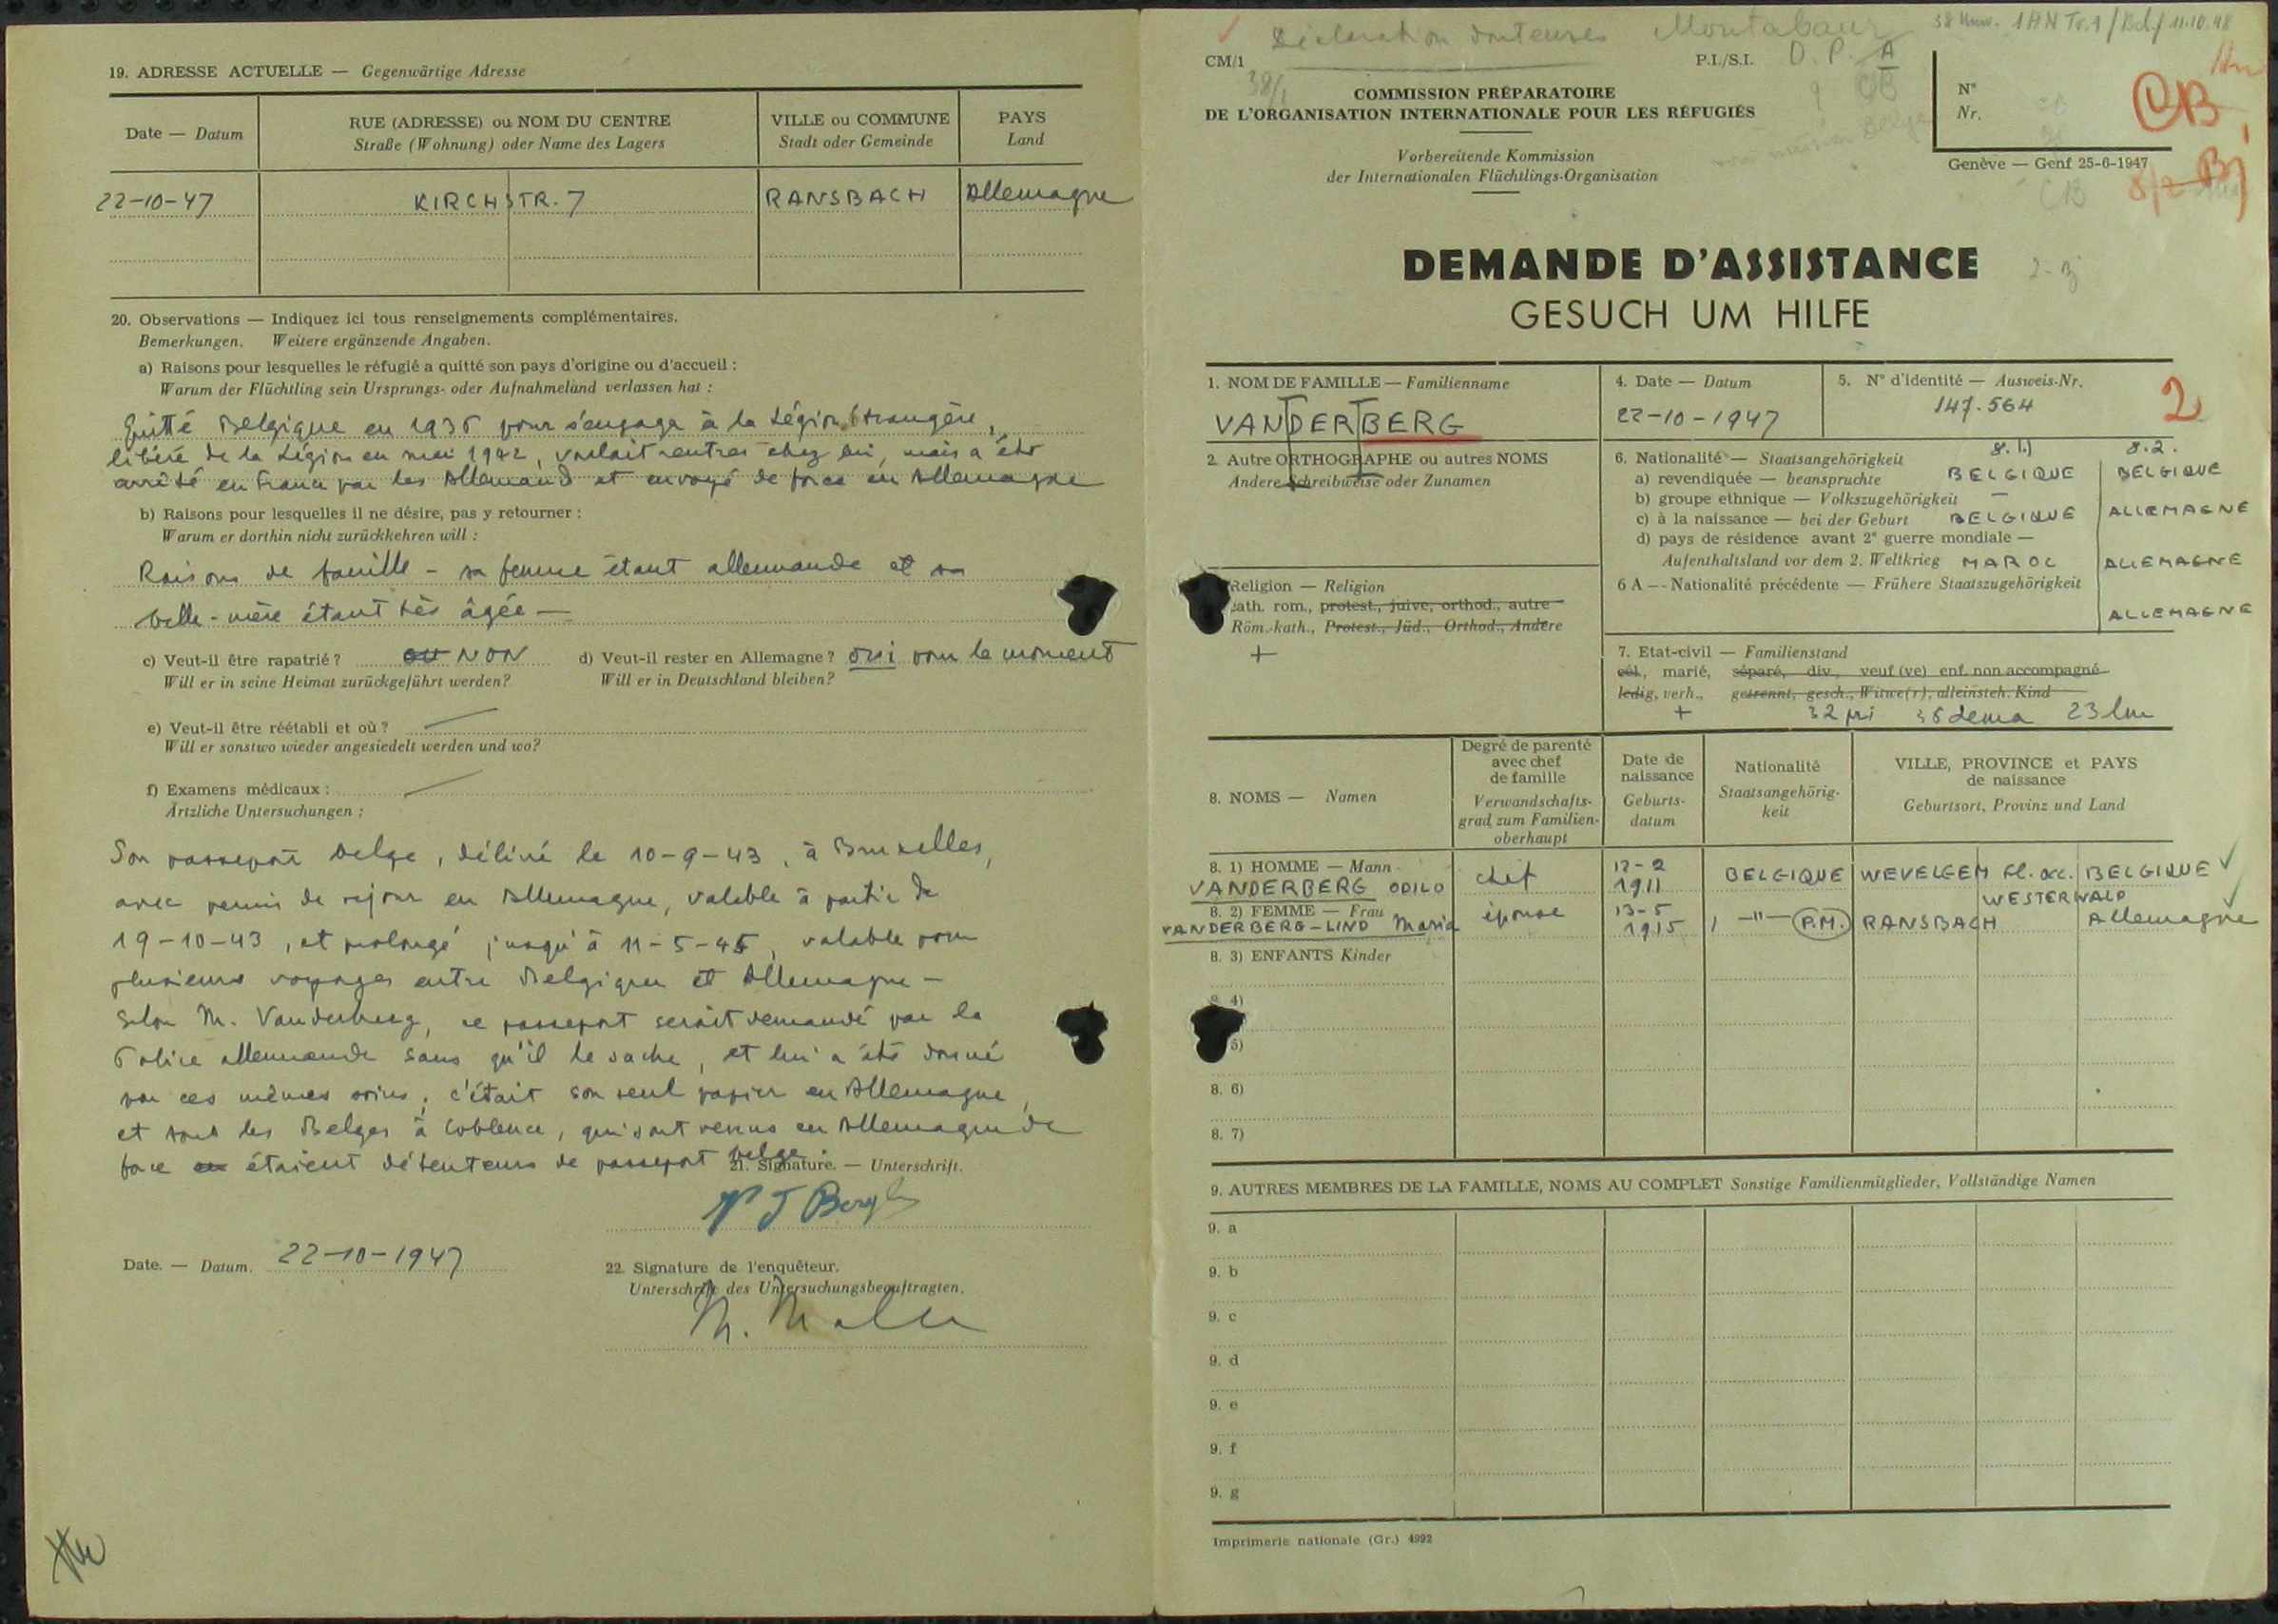 19. ADRESSE ACTUELLE — Gegenwärtige Adresse
Date — Datum
RUE (ADRESSE) ou NOM DU CENTRE
Straße (Wohnung) oder Name des Lagers
VILLE ou COMMUNE
Stadt oder Gemeinde
PAYS
Land
22-10-47 KIRCHSTR. 7 RANSBACH Allemagne
20. Observations — Indiquez ici tous renseignements complémentaires.
Bemerkungen. Weitere ergänzende Angaben.
a) Raisons pour lesquelles le réfugié a quitté son pays d'origine ou d'accueil :
Warum der Flüchtling sein Ursprungs- oder Aufnahmeland verlassen hat :
Quitté Belgique en 1936 pour s'engager à la Légion étrangère,
libéré de la Légion en mai 1942, voulait rentrer chez lui, mais a été
arrêté en France par les Allemands et envoyé de force en Allemagne
b) Raisons pour lesquelles il ne désire, pas y retourner :
Warum er dorthin nicht zurückkehren will :
Raisons de famille - sa femme étant allemande et sa
belle-mère étant très âgée —
c) Veut-il être rapatrié ? NON d) Veut-il rester en Allemagne ? oui pour le moment
Will er in seine Heimat zurückgeführt werden? Will er in Deutschland bleiben?
e) Veut-il être réétabli et où ? —
Will er sonstwo wieder angesiedelt werden und wo?
f) Examens médicaux : —
Ärtzliche Untersuchungen ;
Son passeport belge, délivré le 10-9-43, à Bruxelles,
avec permis de séjour en Allemagne, valable à partir de
19-10-43, et prolongé jusqu'à 11-5-45, valable pour
plusieurs voyages entre Belgique et Allemagne —
Selon M. Vanderberg, ce passeport serait demandé par la
Police allemande sans qu'il le sache, et lui a été donné
par ces mêmes soins ; c'était son seul papier en Allemagne,
et tous les Belges à Coblence, qui sont venus en Allemagne de
force étaient détenteurs de passeport belge.
21. Signature. — Unterschrift.
Date. — Datum. 22-10-1947
22. Signature de l'enquêteur.
Unterschrift des Untersuchungsbeauftragten.
Déclaration douteuses Montabaur
CM/1
P.I./S.I. D. P. A
38/1
COMMISSION PRÉPARATOIRE
DE L'ORGANISATION INTERNATIONALE POUR LES RÉFUGIÉS
Vorbereitende Kommission
der Internationalen Flüchtlings-Organisation
N°
Nr.
CB
Genève — Genf 25-6-1947
CB
DEMANDE D'ASSISTANCE
GESUCH UM HILFE
1. NOM DE FAMILLE — Familienname
VANDERBERG
4. Date — Datum
22-10-1947
5. N° d'identité — Ausweis-Nr.
147.564
2
2. Autre ORTHOGRAPHE ou autres NOMS
Andere Schreibweise oder Zunamen
8.1) 8.2.
6. Nationalité — Staatsangehörigkeit
a) revendiquée — beanspruchte BELGIQUE BELGIQUE
b) groupe ethnique — Volkszugehörigkeit —
c) à la naissance — bei der Geburt BELGIQUE ALLEMAGNE
d) pays de résidence avant 2e guerre mondiale —
Aufenthaltsland vor dem 2. Weltkrieg MAROC ALLEMAGNE
6 A — Nationalité précédente — Frühere Staatszugehörigkeit
ALLEMAGNE
Religion — Religion
cath. rom., protest., juive, orthod., autre
Röm.-kath., Protest., Jüd., Orthod., Andere
+
7. Etat-civil — Familienstand
cél., marié, séparé, div., veuf (ve) enf. non accompagné
ledig, verh., getrennt, gesch., Witwe(r), alleinsteh. Kind
+
8. NOMS — Namen
Degré de parenté
avec chef
de famille
Verwandschafts-
grad zum Familien-
oberhaupt
Date de
naissance
Geburts-
datum
Nationalité
Staatsangehörig-
keit
VILLE, PROVINCE et PAYS
de naissance
Geburtsort, Provinz und Land
8. 1) HOMME — Mann
VANDERBERG ODILO chef 12-2 1911 BELGIQUE WEVELGEM Fl. occ. BELGIQUE
8. 2) FEMME — Frau
VANDERBERG-LIND Maria épouse 13-5 1915 —"— (P.M.) RANSBACH WESTERWALD Allemagne
8. 3) ENFANTS Kinder
8. 4)
5)
8. 6)
8. 7)
9. AUTRES MEMBRES DE LA FAMILLE, NOMS AU COMPLET Sonstige Familienmitglieder, Vollständige Namen
9. a
9. b
9. c
9. d
9. e
9. f
9. g
Imprimerie nationale (Gr.) 4992